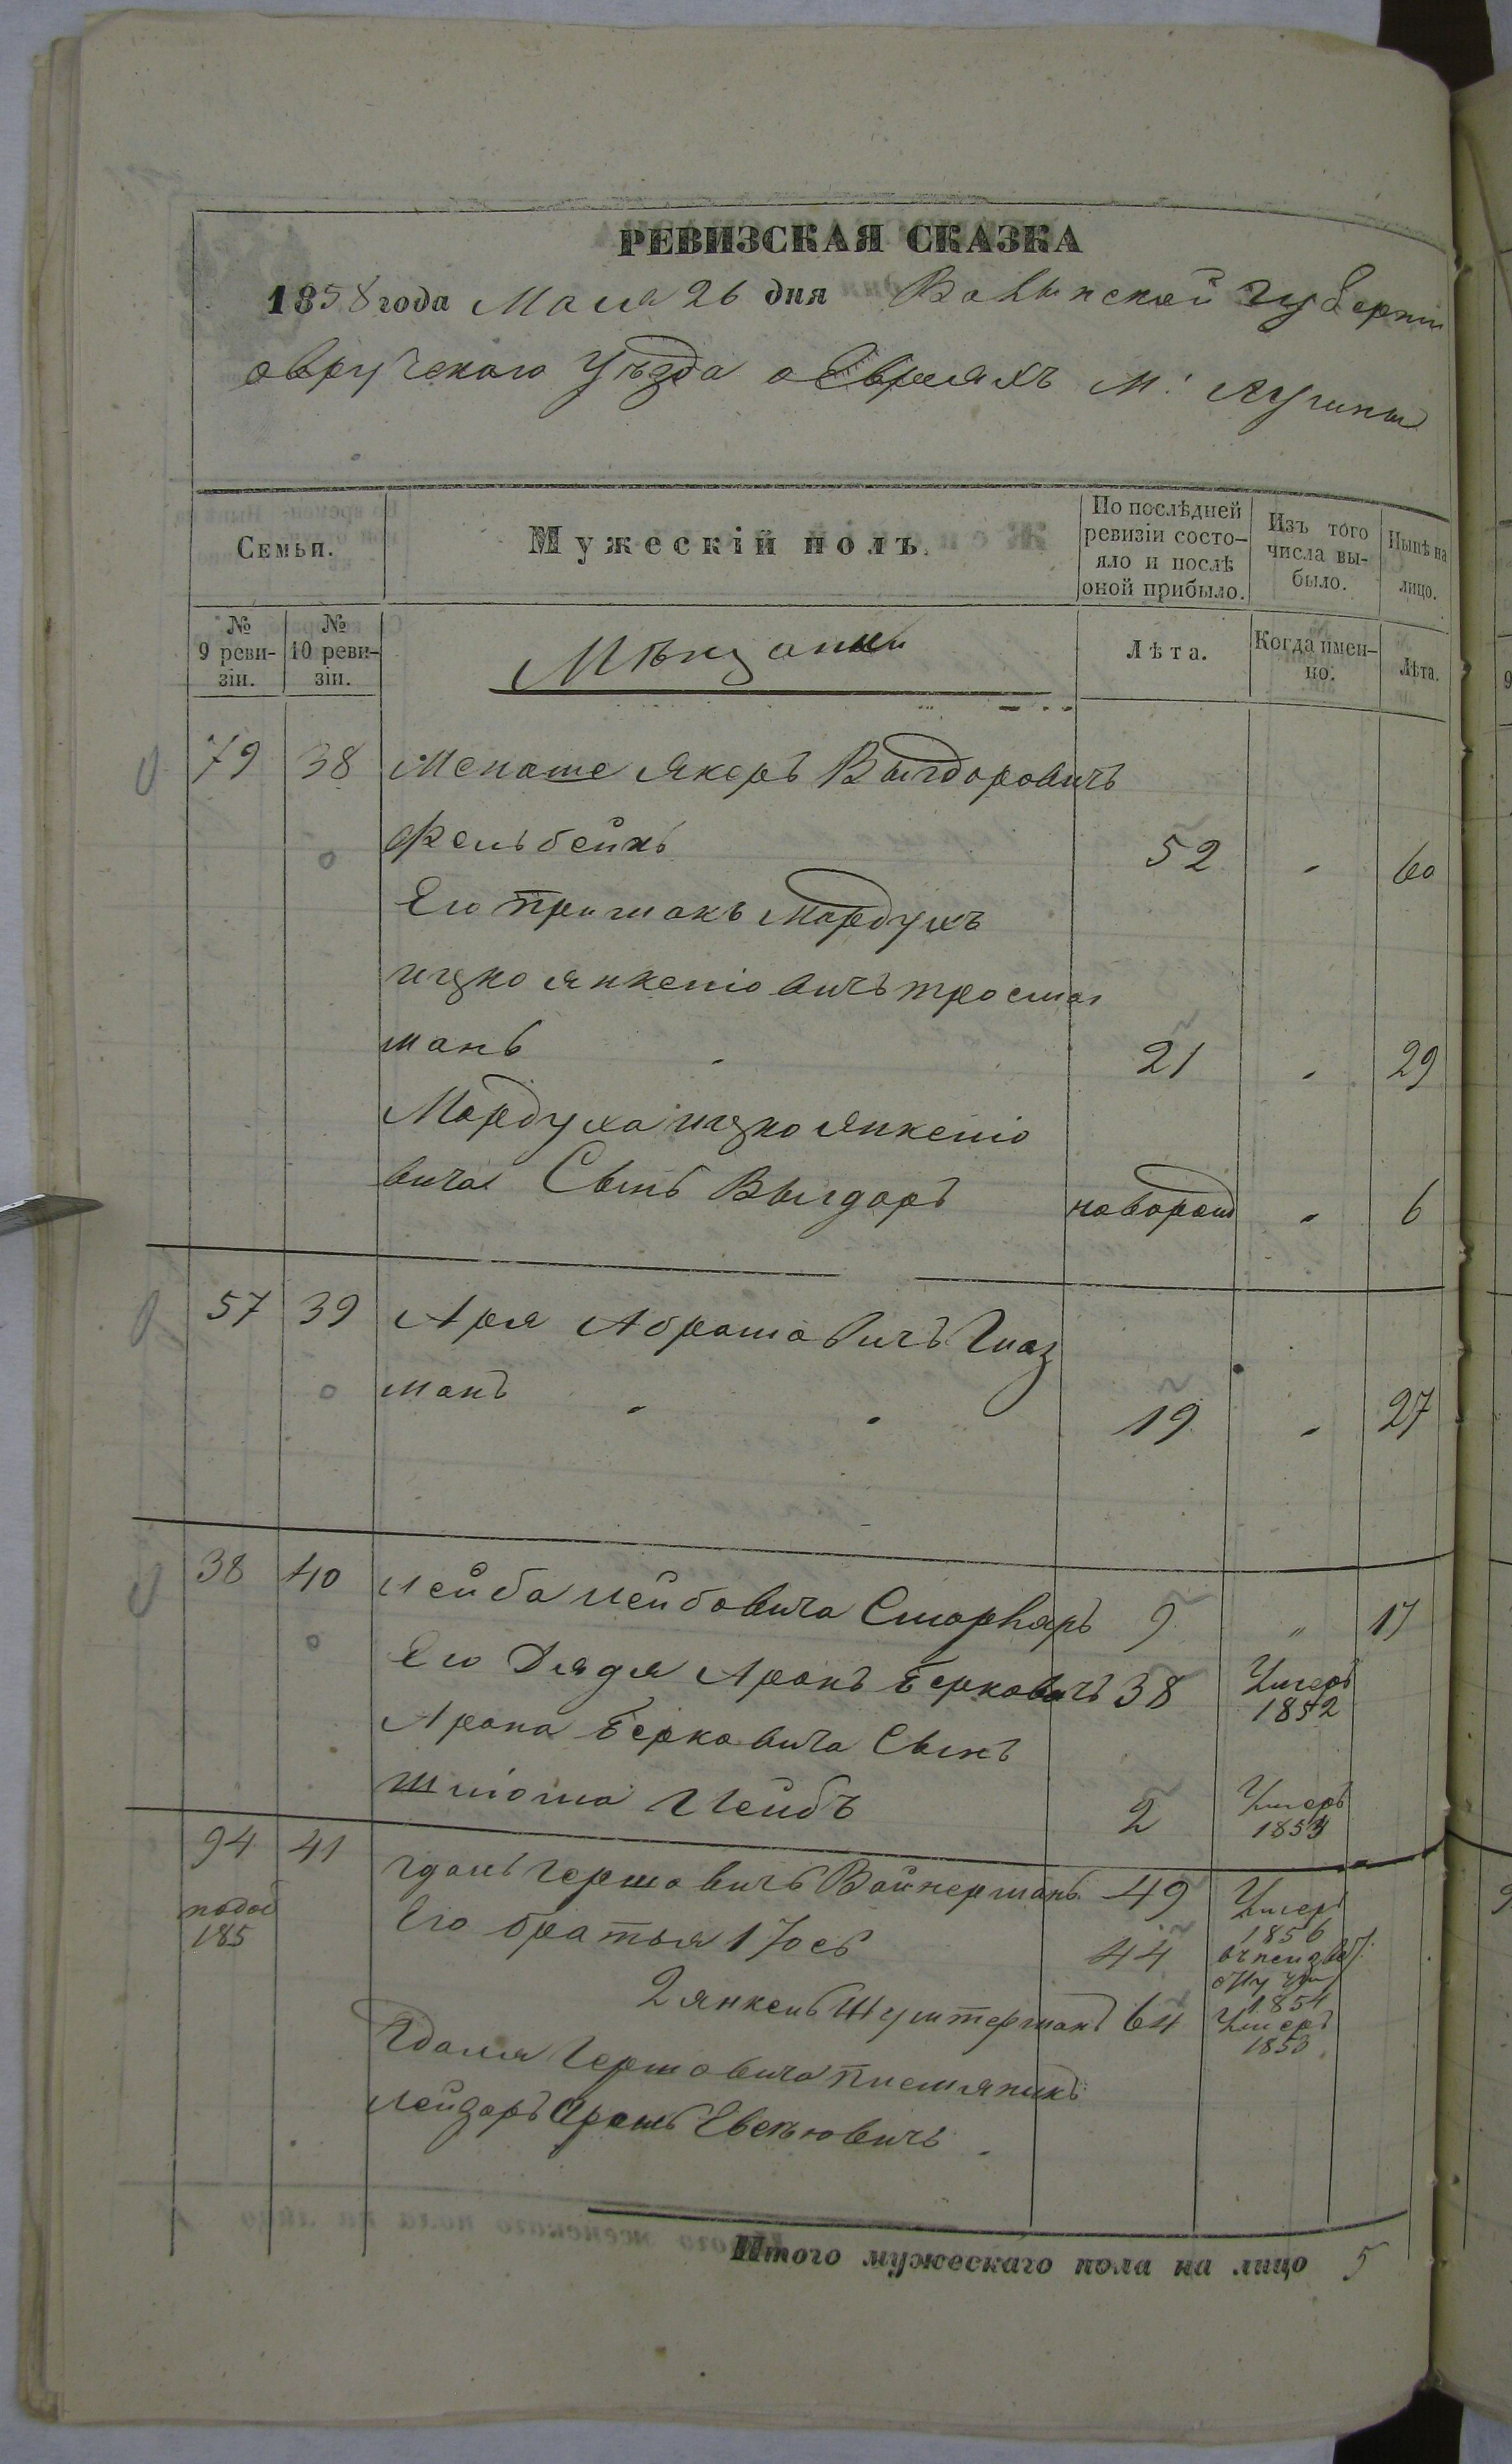 РЕВИЗСКАЯ СКАЗКА
1858 года Мая 26 дня Волынской губернiи
овручского Уѣзда о Евреяхъ м. лугины
Семьи.
Мужескiй полъ.
По послѣдней ревизiи состо-
яло и послѣ
оной прибыло.
Изъ того
числа вы-
было.
Нынѣ на
лицо.
№
9 реви-
зiи.
№
10 реви-
зiи.
Мѣщане
Лѣта.
Когда имен-
но.
Лѣта.
79 38 Менаше Якеръ Выгдоровичъ
Фельбейнъ 52 „ 60
Его примакъ Мордухъ
ицко янкелiовичъ трости
манъ 21 „ 29
Мордуха ицко Янкелiо
вича Сынъ Выгдоръ новорожд „ 6
57 39 Аря Абрамовичъ Глаз
манъ 19 „ 27
38 40 лейба лейбовича Столяръ 9 „ 17
Его Дядя Аронъ Берковичъ 38 Умеръ
1852
Арона Берковича Сынъ
шлiома Лейбъ 2 Умеръ
1853
94 41 гдаль гершовичъ Вайнерманъ 49 Умеръ
1856
подов
185
Его братья 1 Иось 44
1854
2 янкель Шустерманъ 64 Умеръ
1853
Гдаля Гершовича племяникъ
лейзоръ Аронъ Евелювичъ
Итого мужескаго пола на лицо 5